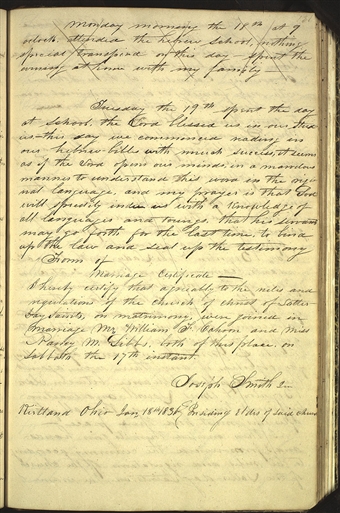 Monday morning the 18th at 9
oclock, attended the hebrew School, nothing
special transpired on this day spent the
evening at home with my family
Tuesday the 19th spent the day
at School. the Lord blessed us in our
this day we commenced reading in
our hebrew bibles with much success, it seems
as if the Lord opens our minds, in a marvelous
manner to understand this word in the origi
nal language, and my prayer is that God
will speedily indue us with a knowledge of
all languages and toungs, that his servants
may go forth for the last time, to bind
up the law and seal up the testimony
Form of
Marriage Certificate —
I hereby certify that agreeably to the rules and
regulations of the church of christ of Latter-
Day Saints, on matrimony, were joined in
marriage Mr William F. Cahoon and Miss
Nancy M. Gibbs, both of this place, on
Sabbath the 17th instant.
Joseph Smith
Kirtland Ohio Jan 18th 1836 Presiding Elder of said church